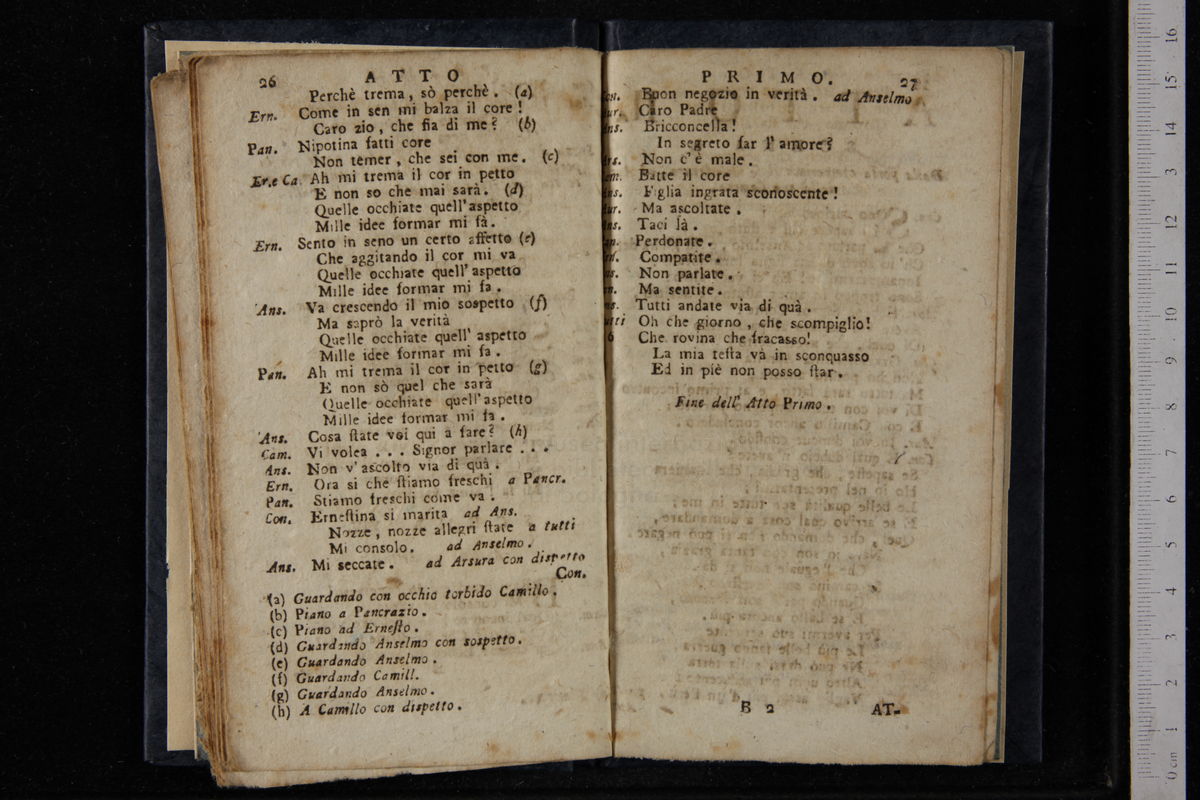 26 ATTO
Perchè trema, sò perchè. (a)
Ern. Come in sen mi balza il core!
Caro zio, che fia di me? (b)
Pan. Nipotina fatti core
Non temer, che sei con me. (c)
Er.e Ca. Ah mi trema il cor in petto
E non so che mai sarà. (d)
Quelle occhiate quell'aspetto
Mille idee formar mi fà.
Ern. Sento in seno un certo affetto (e)
Che aggitando il cor mi va
Quelle occhiate quell'aspetto
Mille idee formar mi fa.
Ans. Va crescendo il mio sospetto (f)
Ma saprò la verità
Quelle occhiate quell' aspetto
Mille idee formar mi fa.
Pan. Ah mi trema il cor in petto (g)
E non sò quel che sarà
Quelle occhiate quell'aspetto
Mille idee formar mi fa.
Ans. Cosa state voi qui a fare? (h)
Cam. Vi volea . . . Signor parlare . . .
Ans. Non v'ascolto via di quà.
Ern. Ora si che stiamo freschi a Pancr.
Pan. Stiamo freschi come va.
Con. Ernestina si marita ad Ans.
Nozze, nozze allegri state a tutti
Mi consolo. ad Anselmo.
Ans. Mi seccate. ad Arsura con dispetto
Con.
(a) Guardando con occhio torbido Camillo.
(b) Piano a Pancrazio.
(c) Piano ad Ernesto.
(d) Guardando Anselmo con sospetto.
(e) Guardando Anselmo.
(f) Guardando Camill.
(g) Guardando Anselmo.
(h) A Camillo con dispetto.
PRIMO. 27
Buon negozio in verità. ad Anselmo
ur. Caro Padre
ns. Bricconcella!
In segreto far l'amore?
rs. Non c'è male.
em. Batte il core
ns. Figlia ingrata sconoscente!
ur. Ma ascoltate.
ns. Taci là.
Perdonate.
Compatite.
Non parlate.
Ma sentite.
Tutti andate via di quà.
Oh che giorno, che scompiglio!
Che rovina che fracasso!
La mia testa và in sconquasso
Ed in piè non posso star.
Fine dell' Atto Primo.
B 2 AT-
0 cm 1 2 3 4 5 6 7 8 9 10 11 12 13 14 15 16